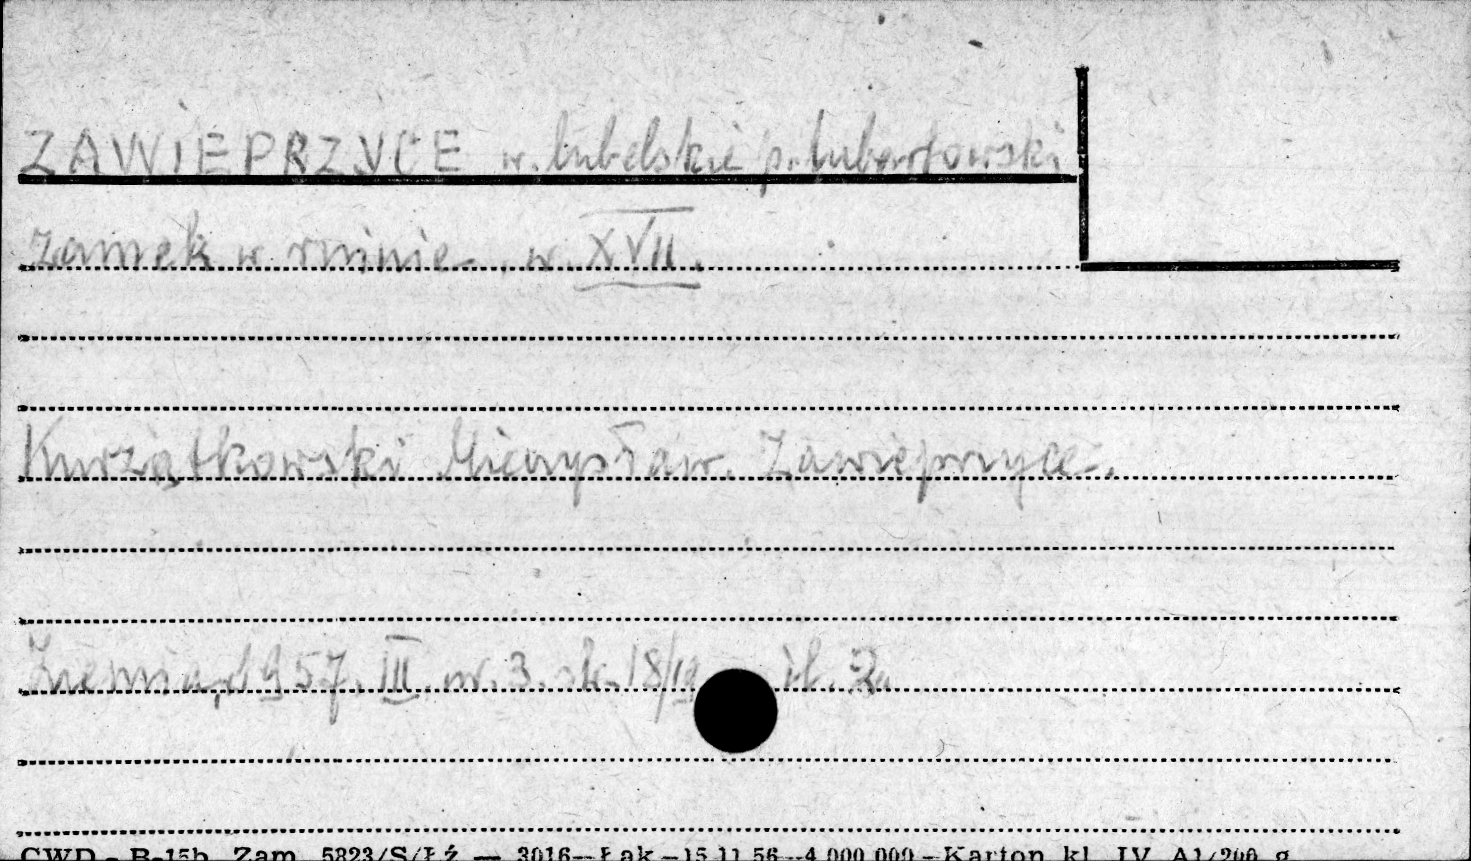 ZAWIEPRZYCE w. lubelskie p. lubartowski
Zamek w ruinie, w. XVII.
Kurzątkowski Mieczysław. Zawieprzyce.
Ziemia, 1957. III. nr. 3. str. 18/19 il. 2.
CWD - B-15b Zam. 5823/S/ŁŹ — 3016—Łak—15.11.56—4.000.000—Karton kl. IV A1/200 g